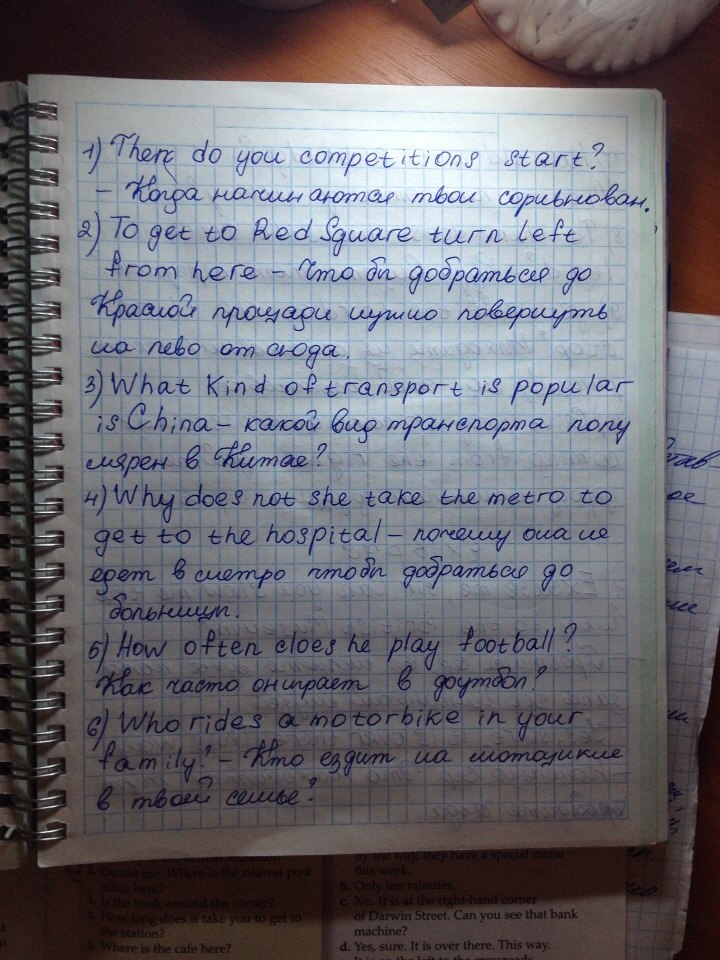 1) Then do you competitions start?
- Когда начинаются твои соривнован.
2) To get to Red Square turn left
from here - Что бы добраться до
Красной прощади нужно повернуть
на лево от сюда.
3) What kind of transport is popular
is China - какой вид транспорта попу
лярен в Китае?
4) Why does not she take the metro to
get to the hospital - почему она не
едет в метро чтобы добраться до
больницы.
5) How often does he play football?
Как часто он играет в футбол?
6) Who rides a motorbike in your
family? - Кто ездит на мотоцикле
в твоей семье?
2. Excuse me. Where is the nearest post
office here?
3. Is the bank around the corner?
4. How long does it take you to get to
the station?
5. Where is the cafe here?
by the way, they have a special menu
this week.
b. Only ten minutes.
c. No. It is at the right-hand corner
of Darwin Street. Can you see that bank
machine?
d. Yes, sure. It is over there. This way.